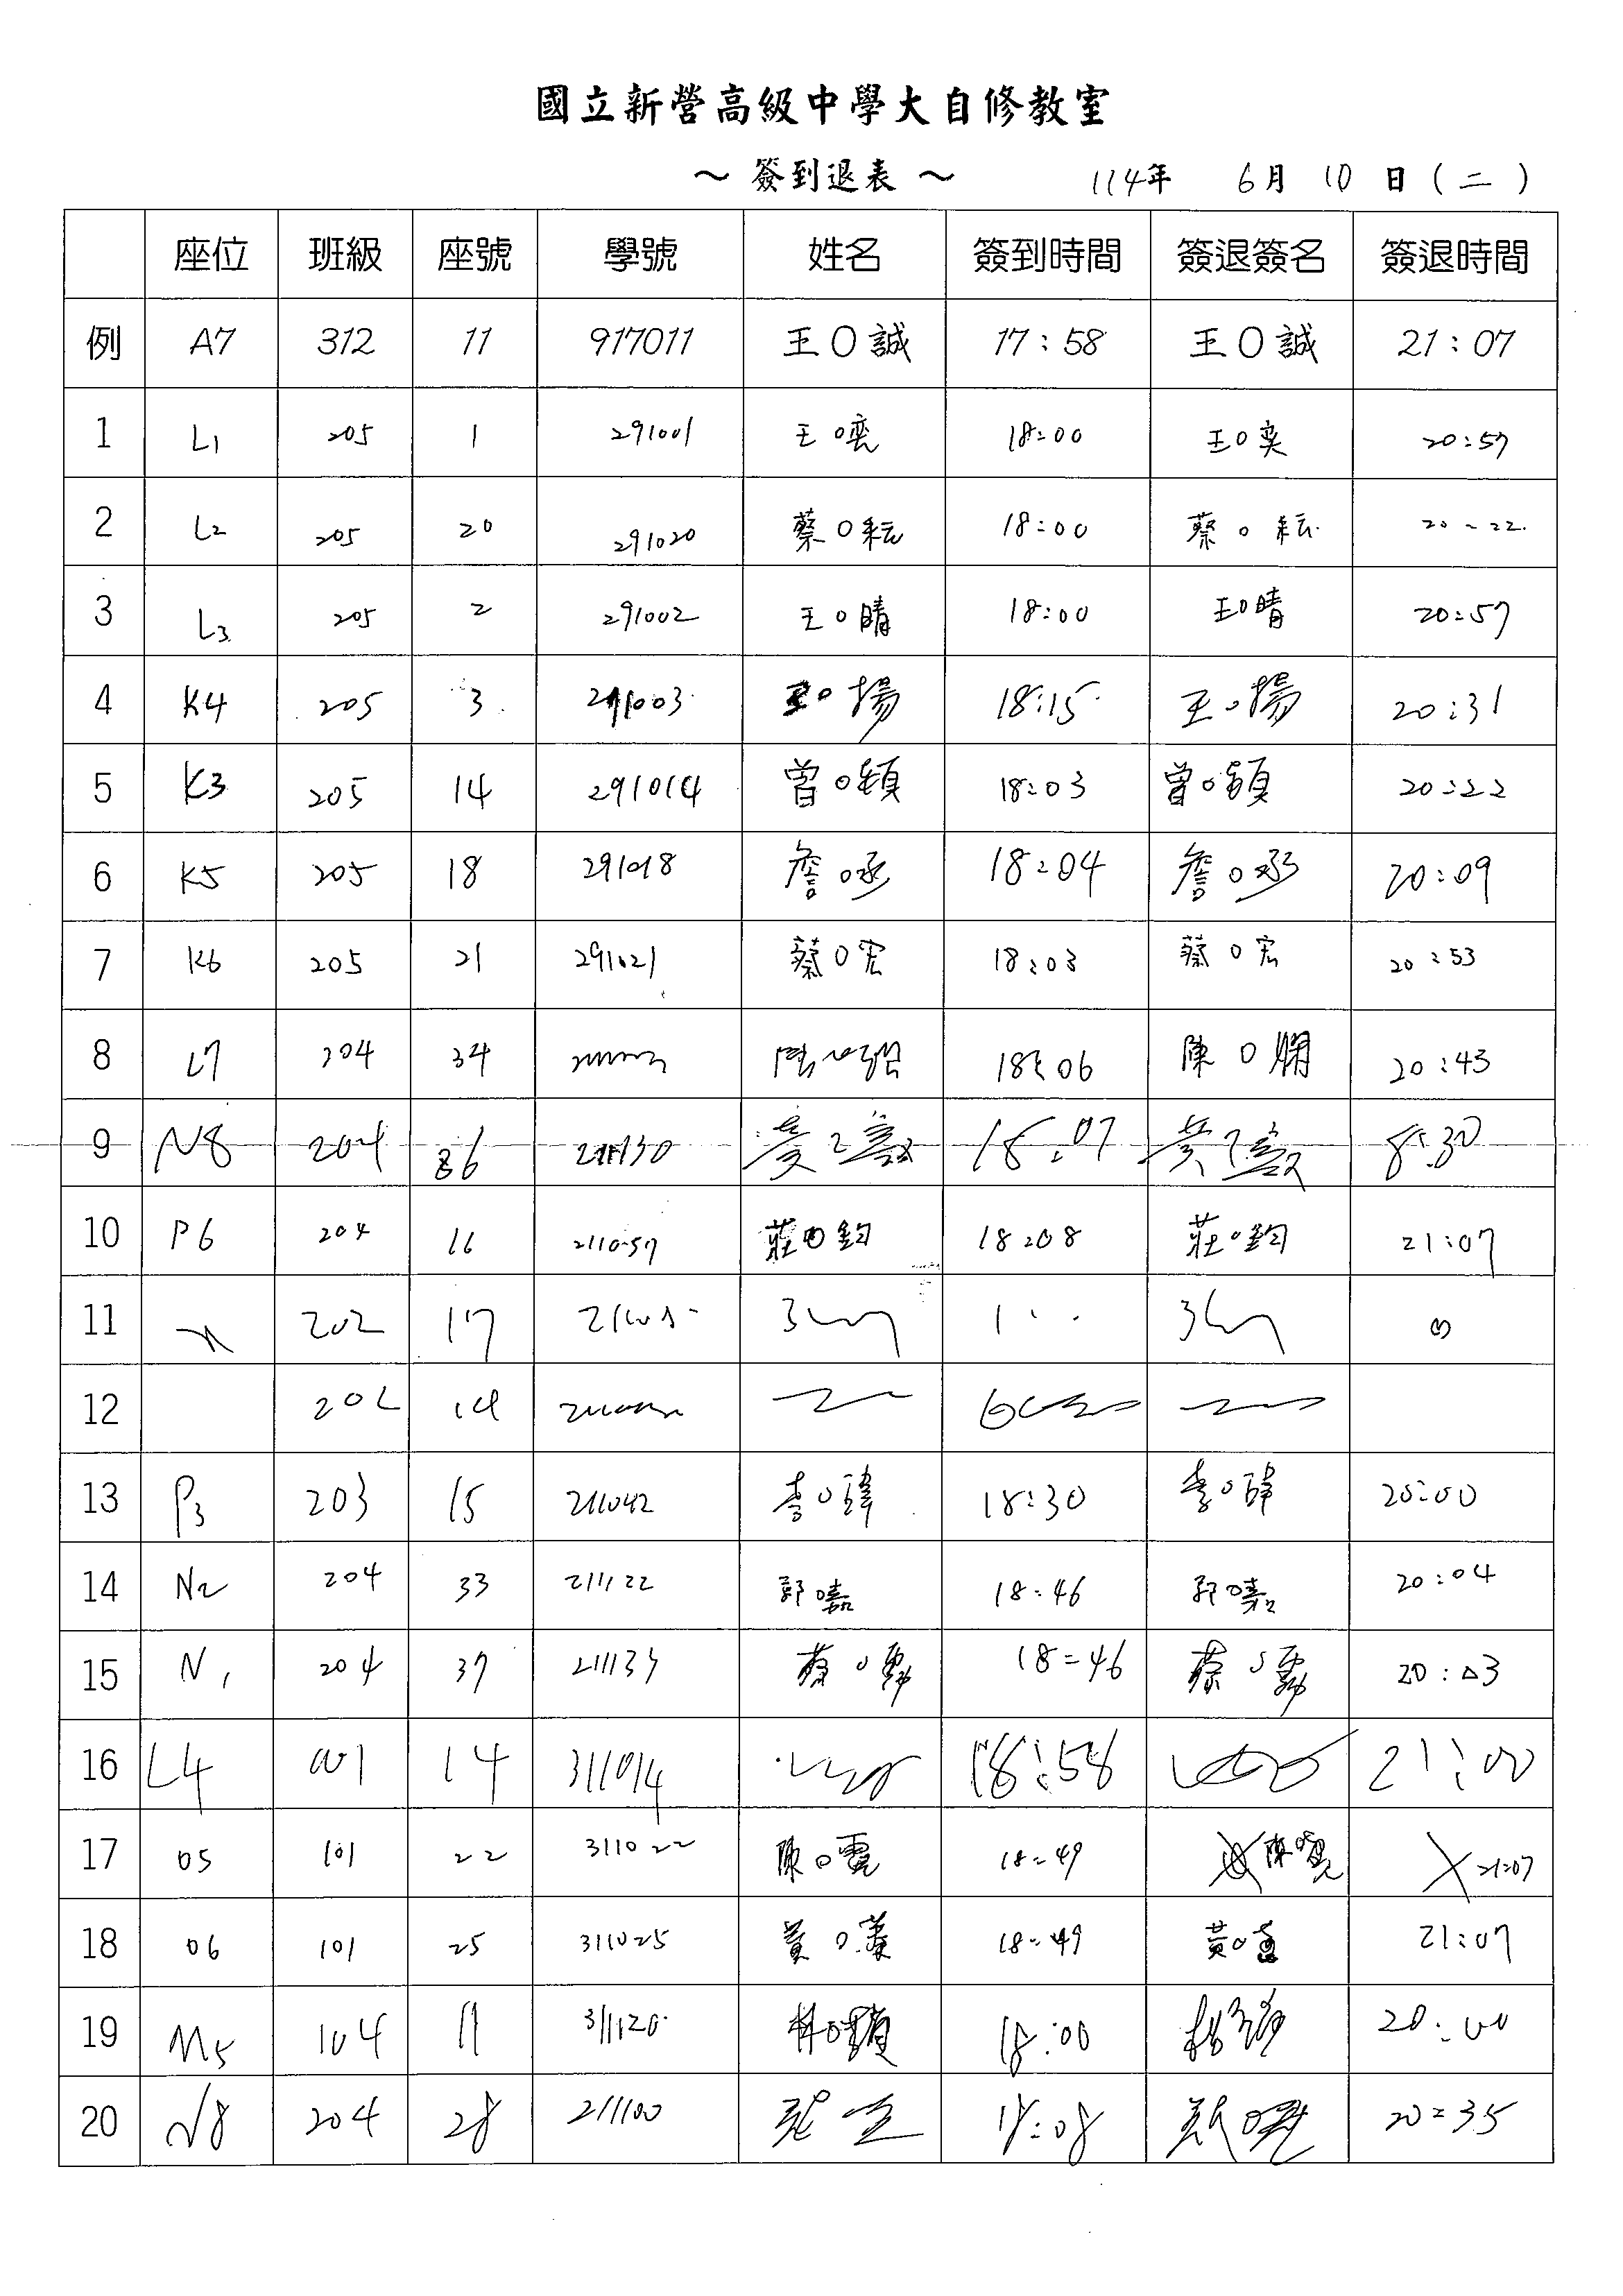 國立新營高級中學大自修教室
～ 簽到退表 ～ 114年 6月 10 日 (二)
座位 班級 座號 學號 姓名 簽到時間 簽退簽名 簽退時間
例 A7 312 11 917011 王O誠 17:58 王O誠 21:07
1 L1 205 1 291001 王O奕 18:00 王O奕 20:57
2 L2 205 20 291020 蔡O耘 18:00 蔡O耘 20-22
3 L3 205 2 291002 王O晴 18:00 王O晴 20:57
4 K4 205 3 291003 王O揚 18:15 王O揚 20:31
5 K3 205 14 291014 曾O穎 18:03 曾O穎 20:22
6 K5 205 18 291018 詹O承 18:04 詹O承 20:09
7 K6 205 21 291021 蔡O宏 18:03 蔡O宏 20:53
8 L7 204 34 18:06 陳O嫻 20:43
9 N8 204 36 18:07 8:30
10 P6 204 16 211057 莊O鈞 18:08 莊O鈞 21:07
11 202 17
12 202 14
13 P3 203 15 211042 李O瑋 18:30 李O瑋 20:00
14 N2 204 33 211122 郭O嘉 18:46 郭O嘉 20:04
15 N1 204 37 18:46 蔡O 20:03
16 L4 14 311014 18:58 21:00
17 05 101 22 311022 陳O霓 18:49 陳O霓 21:07
18 06 101 25 311025 黃O蓁 18:49 黃O 21:07
19 M5 104 11 311120 林O 18:00 20:00
20 N8 204 28 211100 18:08 20:35